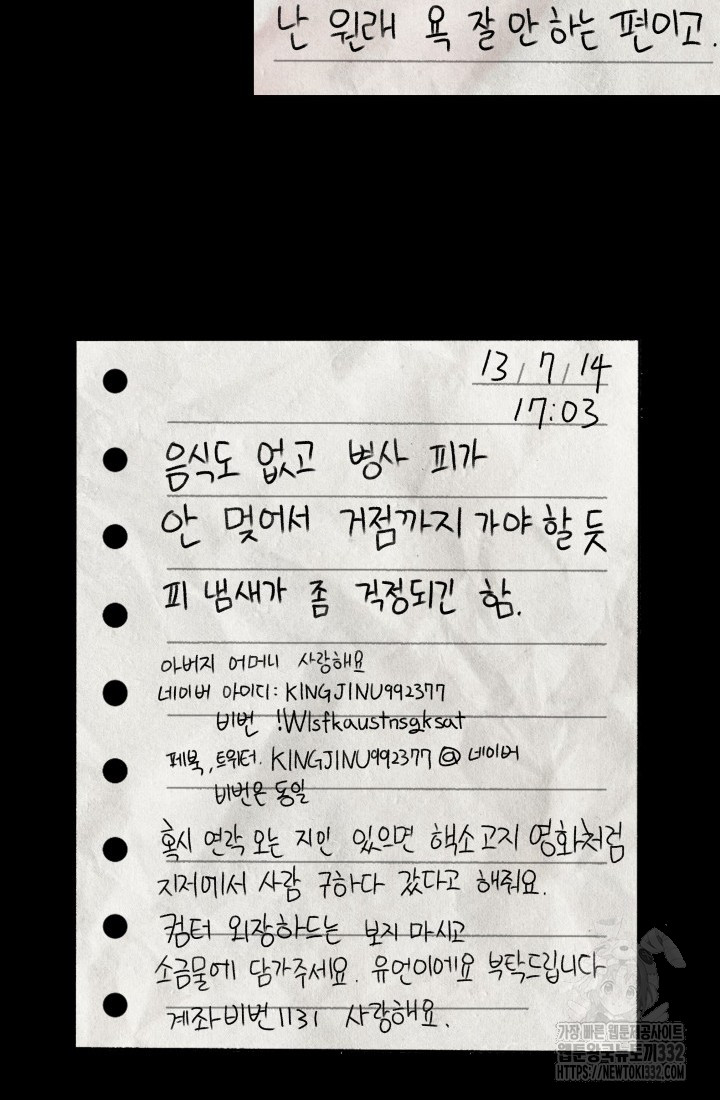 난 원래 욕 잘 안 하는 편이고.
13/7/14
17:03
음식도 없고 병사 피가
안 멎어서 거점까지 가야 할 듯
피 냄새가 좀 걱정되긴 함.
아버지 어머니 사랑해요
네이버 아이디: KINGJINU992377
비번 !Wlsfkaustnsgksat
페북, 트위터. KINGJINU992377@네이버
비번은 동일
혹시 연락 오는 지인 있으면 핵소고지 영화처럼
지저에서 사람 구하다 갔다고 해줘요.
컴터 외장하드는 보지 마시고
소금물에 담가주세요. 유언이에요 부탁드립니다
계좌비번1131 사랑해요.
가장 빠른 웹툰제공사이트
웹툰왕국뉴토끼332
HTTPS://NEWTOKI332.COM